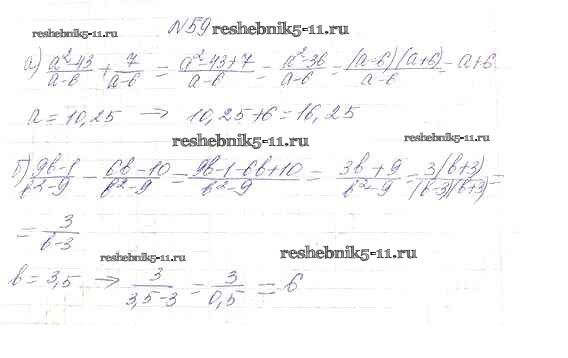 №59 reshebnik5-11.ru
reshebnik5-11.ru
а) (a²-43)/(a-6) + 7/(a-6) = (a²-43+7)/(a-6) = (a²-36)/(a-6) = (a-6)(a+6)/(a-6) = a+6
a = 10,25 → 10,25+6 = 16,25
reshebnik5-11.ru
reshebnik5-11.ru
б) (9b-1)/(b²-9) - (6b-10)/(b²-9) = (9b-1-6b+10)/(b²-9) = (3b+9)/(b²-9) = 3(b+3)/(b-3)(b+3) =
= 3/(b-3)
reshebnik5-11.ru
reshebnik5-11.ru
b = 3,5 → 3/(3,5-3) = 3/0,5 = 6